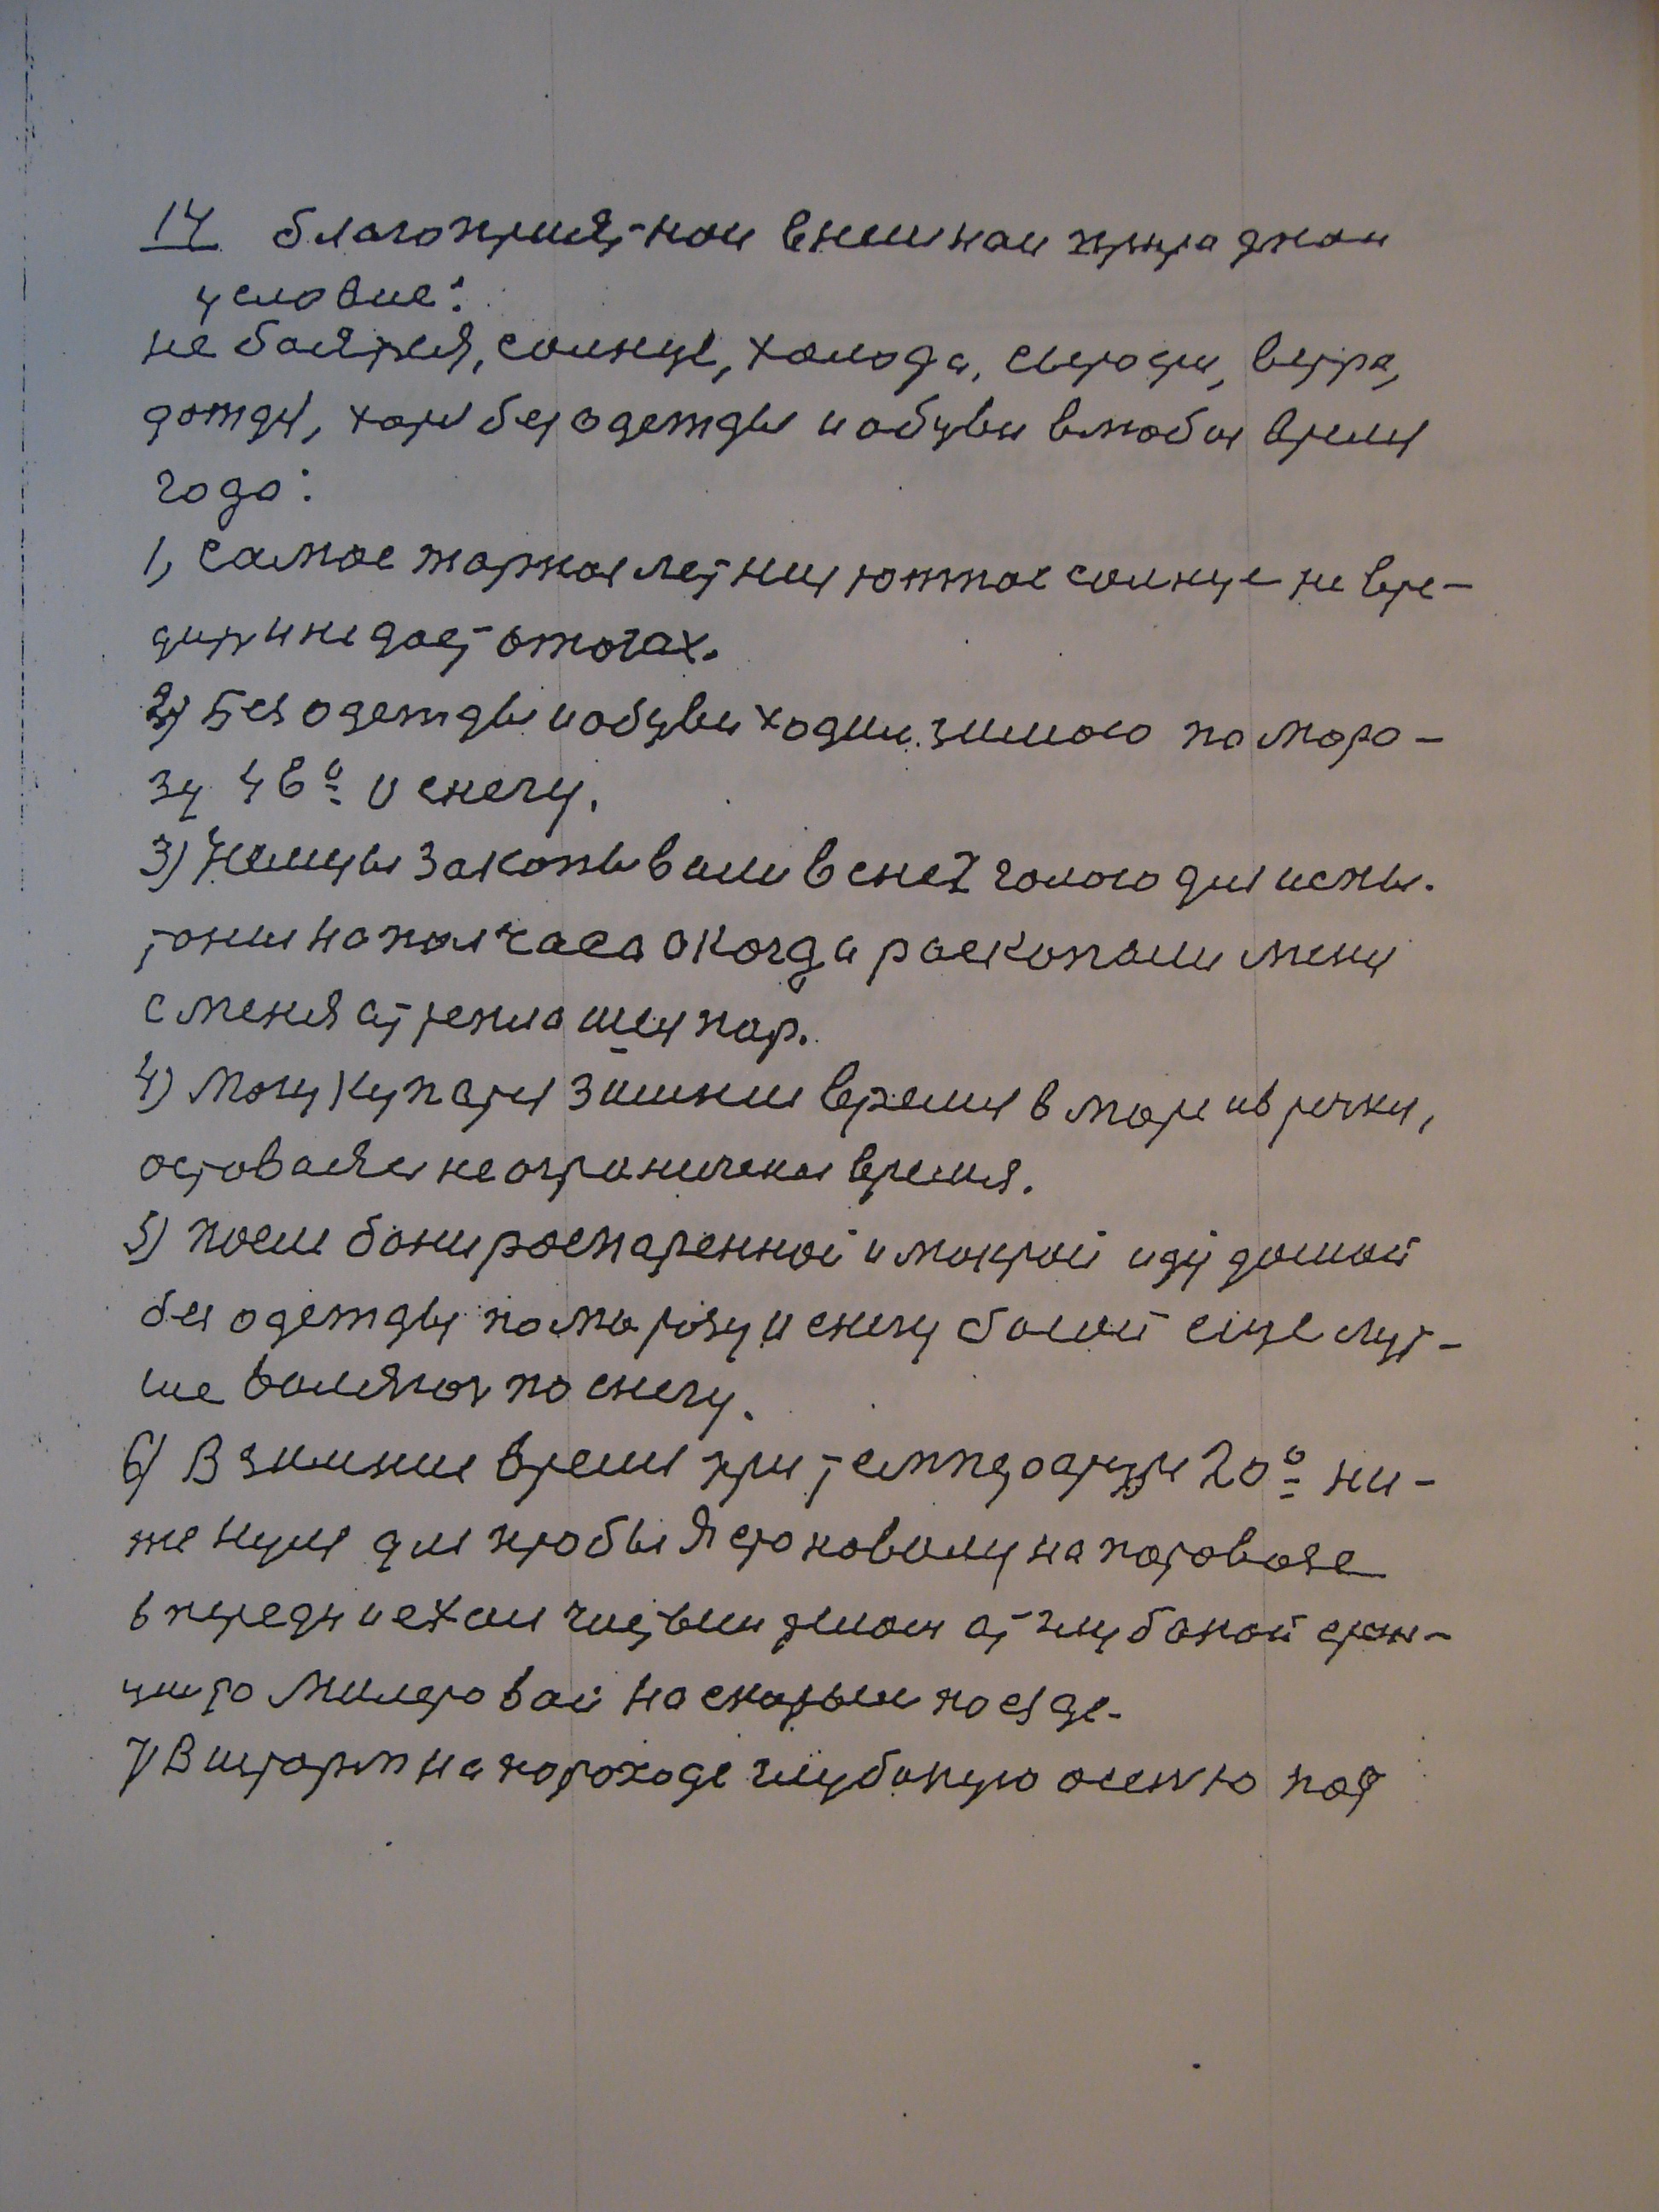 14 благоприятнои внешнои природнои
условие:
не боятся, солнце, холода, сырости, ветра,
дождя, ходит без одежды и обуви в любое время
года:
1, Самое жаркое летние южное солнце не вре-
дит и не дает ожогах.
2) Без одежды и обуви ходил зимою по моро-
зу 46° и снегу.
3) Немцы закопывали в снег голого для испы-
тании на пол часа а когда раскопали меня
с меня от тепла шел пар.
4) Могу купатся зимние время в море и в речки,
оставаяся не ограничено время.
5) После бани распаренной и мокрой иду домой
без одежды по морозу и снегу босой еще лут-
ше валяюсь по снегу.
6) В зимние время при температури 20° ни-
же нуля для пробы я на паровозе
впереди и ехал от глубокой стан-
ции до Миллеровой на скорым поезде.
7) В шторм на пароходе глубокую осенью под